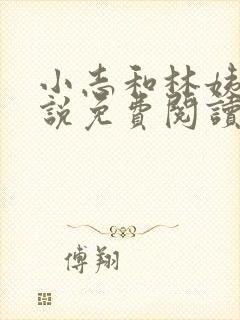 小志和林姨
說免費閱讀
傅翔